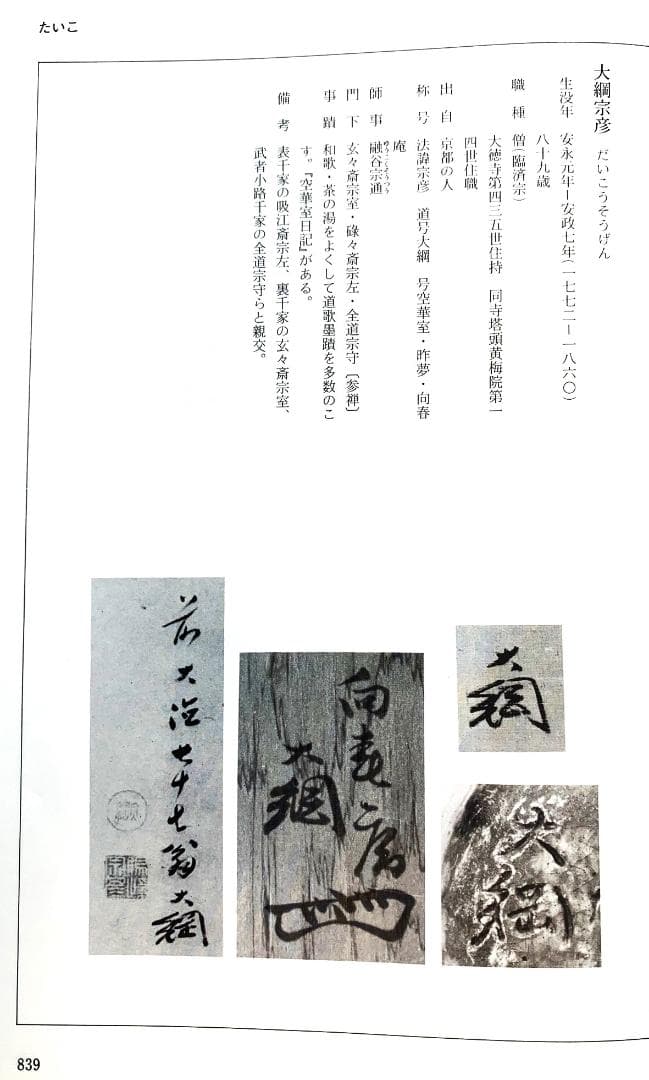 たいこ
大綱宗彦 だいこうそうげん
生没年 安永元年―安政七年(一七七二―一八六〇)
八十九歳
職種 僧(臨済宗)
大徳寺第四三五世住持 同寺塔頭黄梅院第一
四世住職
出自 京都の人
称号 法諱宗彦 道号大綱 号空華室・昨夢・向春
庵
師事 融谷宗通
ゆうこくそうつう
門下 玄々斎宗室・碌々斎宗左・全道宗守〔参禅〕
事蹟 和歌・茶の湯をよくして道歌墨蹟を多数のこ
す。『空華室日記』がある。
備考 表千家の吸江斎宗左、裏千家の玄々斎宗室、
武者小路千家の全道宗守らと親交。
大綱
大綱
向春
大綱
前大徳七十七翁大綱
839